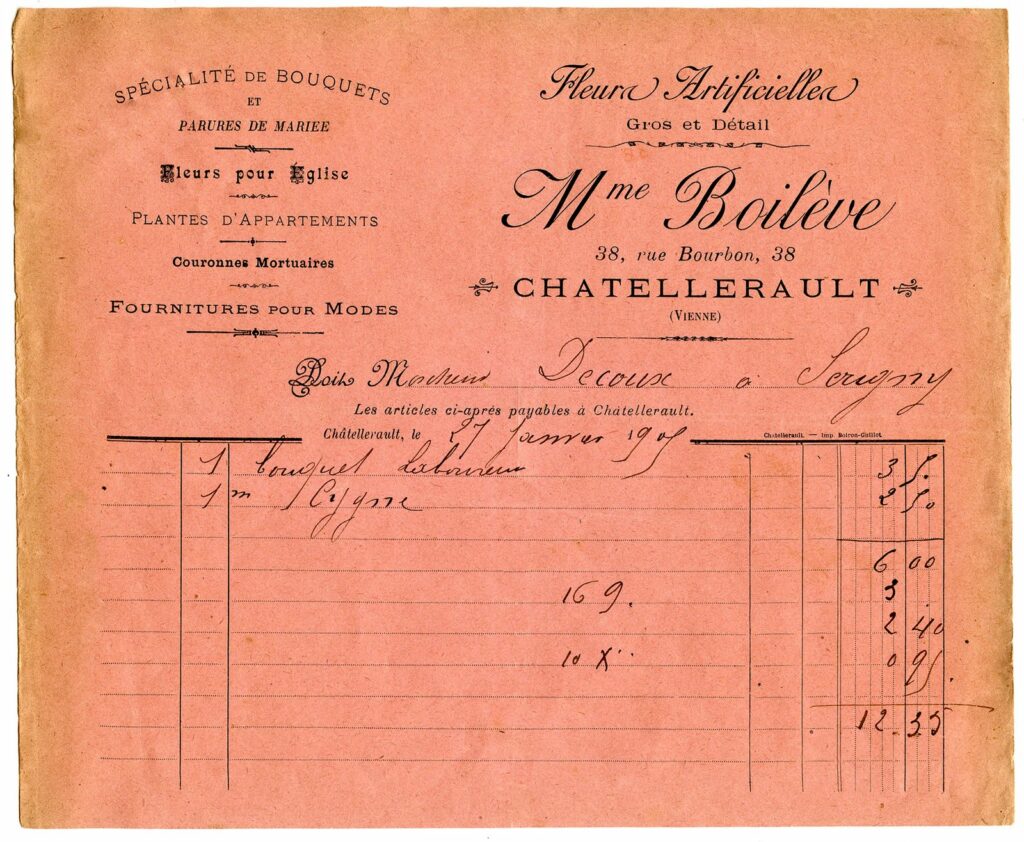 SPÉCIALITÉ DE BOUQUETS
ET
PARURES DE MARIEE
Fleurs pour Église
PLANTES D'APPARTEMENTS
Couronnes Mortuaires
FOURNITURES POUR MODES
Fleurs Artificielles
Gros et Détail
Mme Boilève
38, rue Bourbon, 38
CHATELLERAULT
(VIENNE)
Doit Decoux a Serigny
Les articles ci-après payables à Châtellerault.
Châtellerault, le 27 Janvier 1905
Châtellerault. — Imp. Botron-Guillot.
1 bouquet 3 5.
1 m Cygne 2 50
6 00
16 9. 3
2 40
10 X 0 95.
12.35